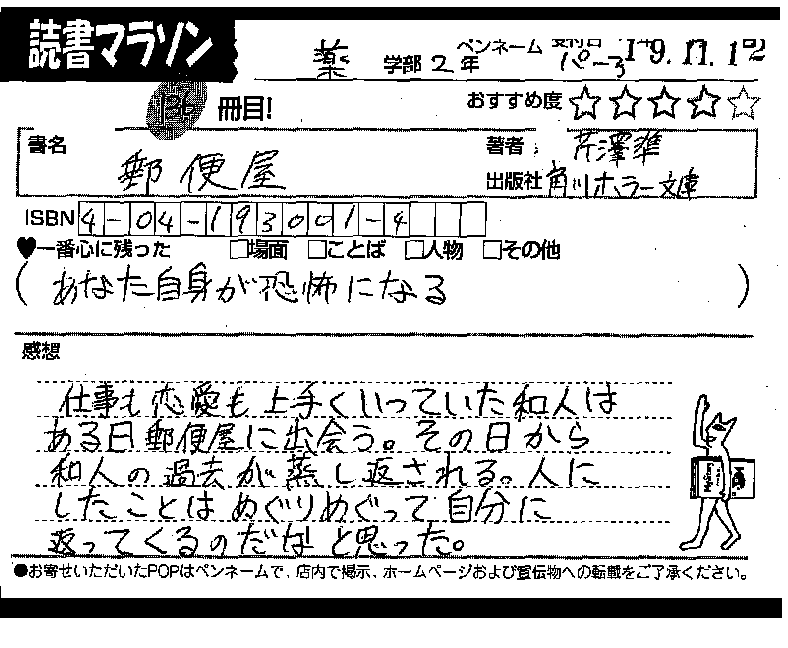 読書マラソン
薬 学部 2 年 ペンネーム ぺーろ 受付日 '19.11.12
136 冊目!
おすすめ度 ☆☆☆☆☆
書名 郵便屋
著者: 芹澤準
出版社 角川ホラー文庫
ISBN 4-04-193001-4
♥一番心に残った □場面 □ことば □人物 □その他
(あなた自身が恐怖になる)
感想
仕事も恋愛も上手くいっていた和人は
ある日郵便屋に出会う。その日から
和人の過去が蒸し返される。人に
したことはめぐりめぐって自分に
返ってくるのだなと思った。
●お寄せいただいたPOPはペンネームで、店内で掲示、ホームページおよび宣伝物への転載をご了承ください。